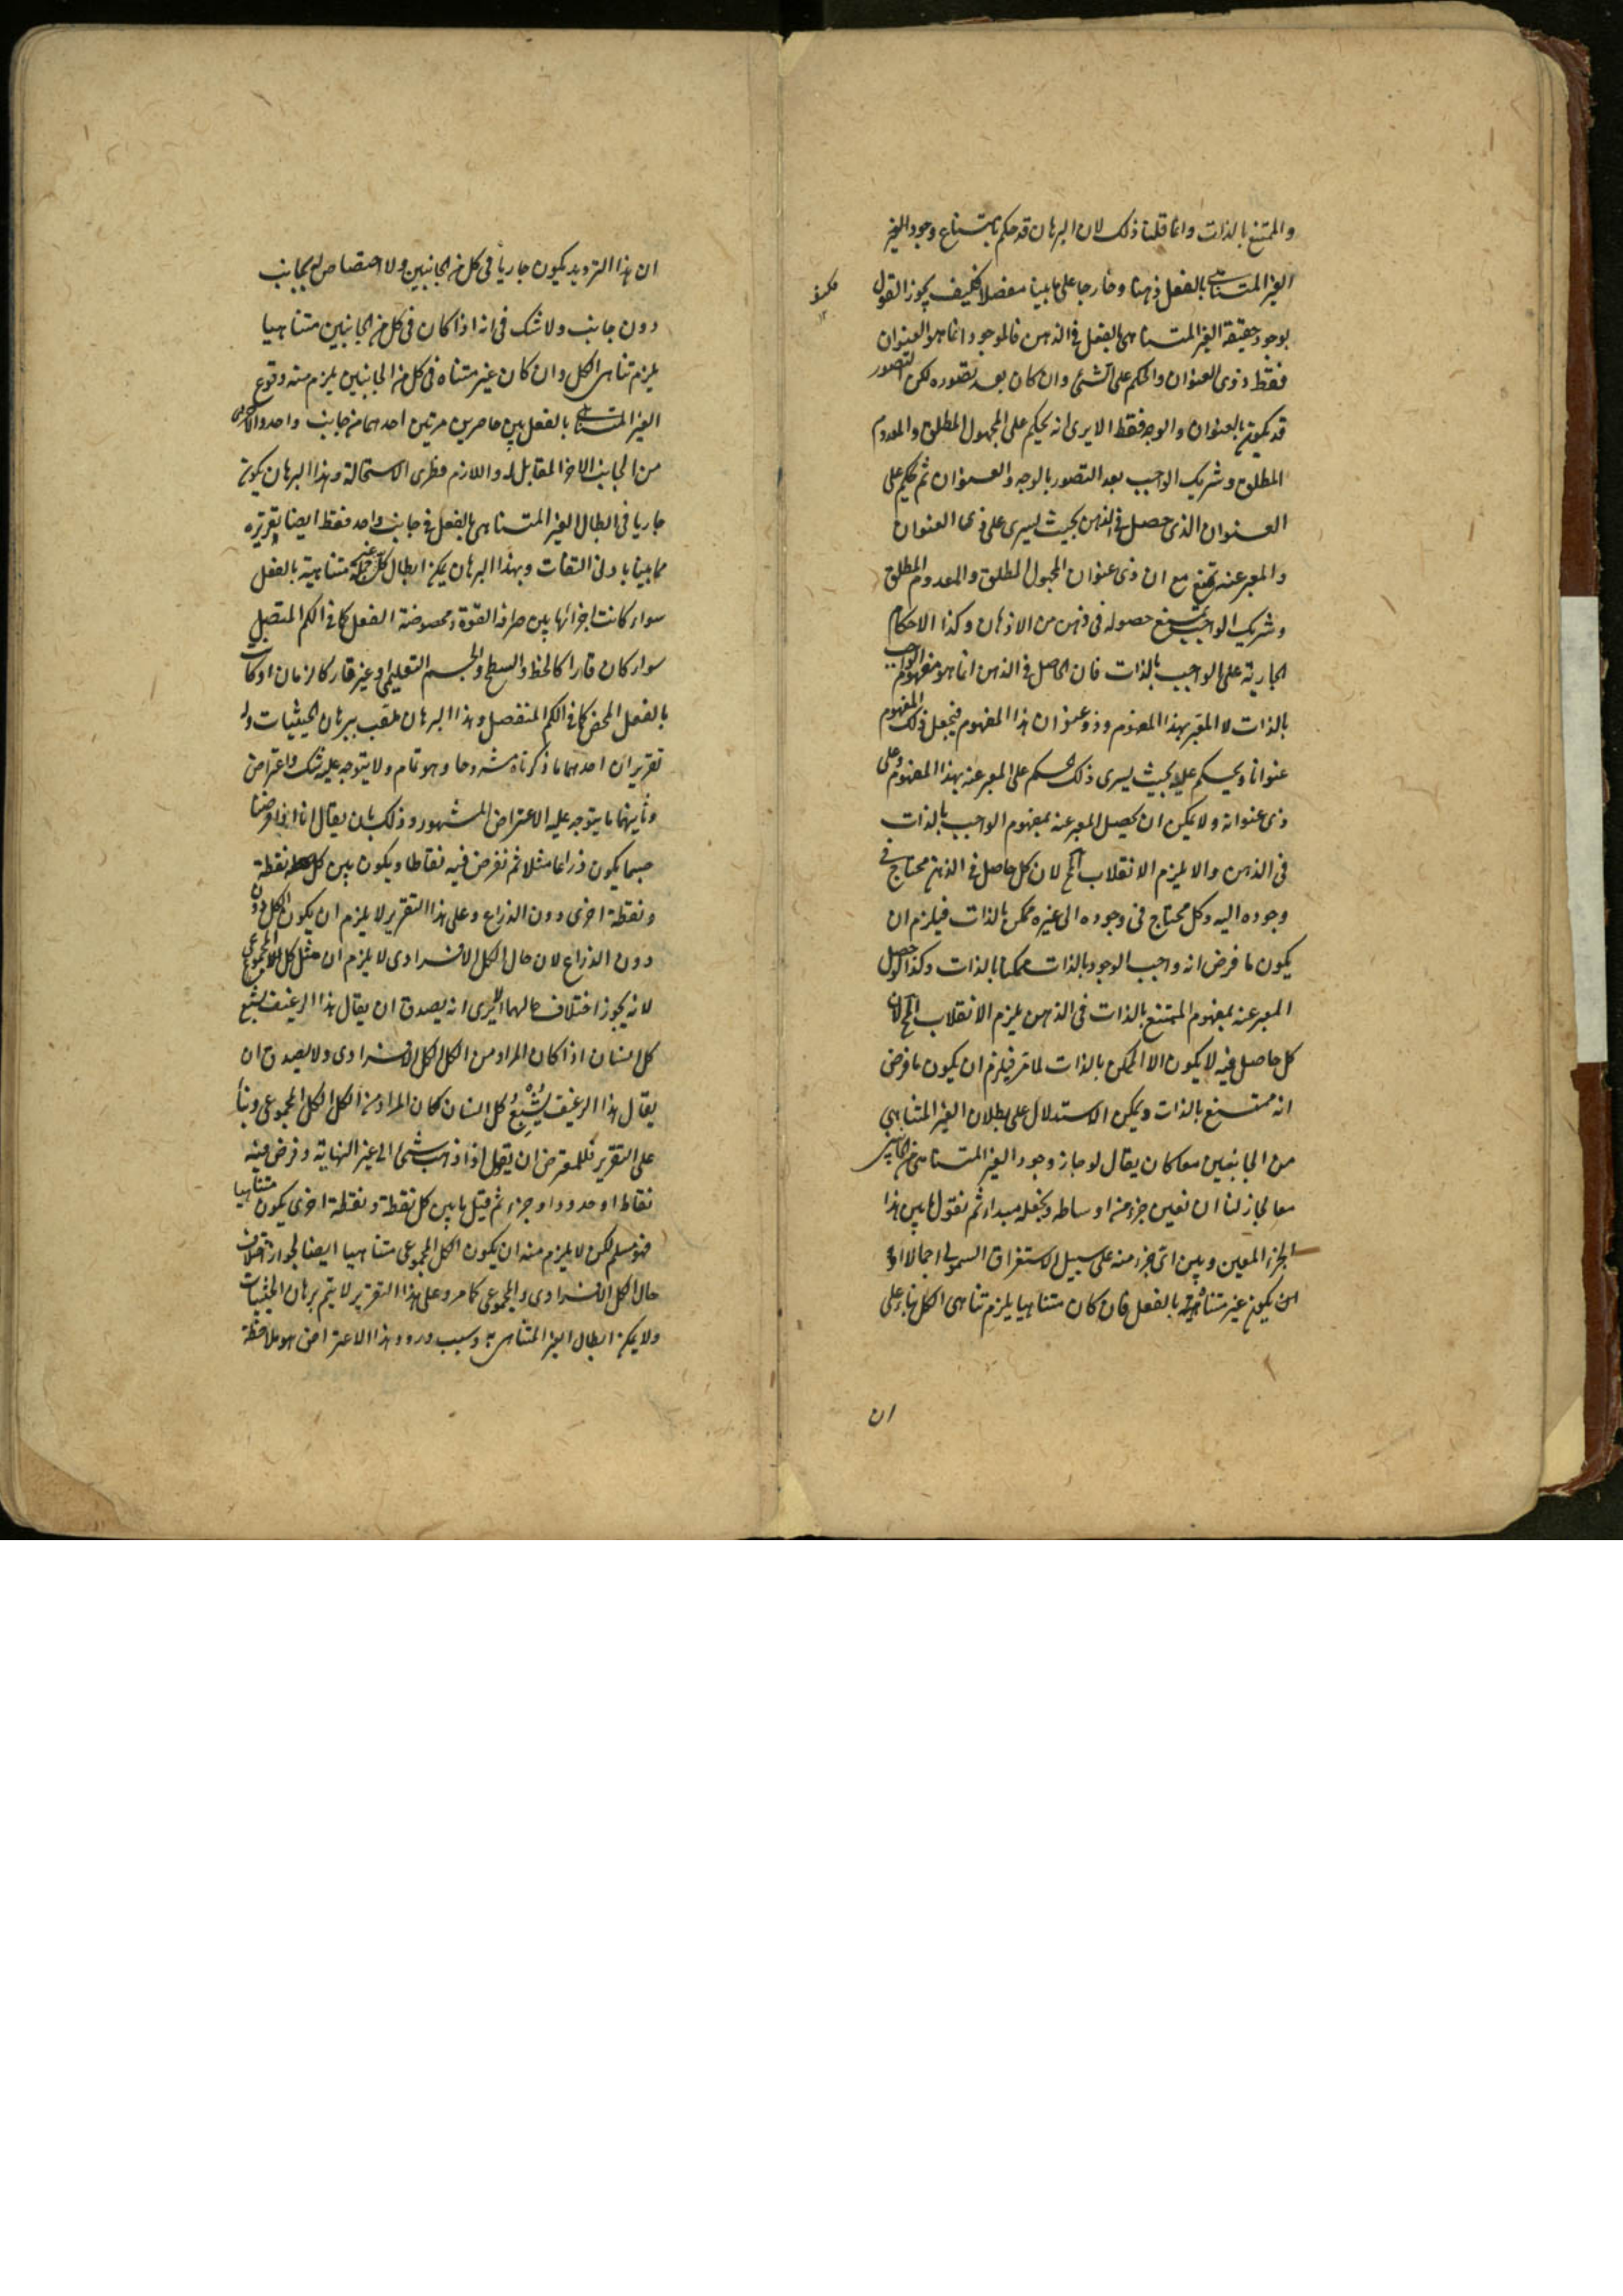 والممتنع بالذات وانما قلنا ذلك لان البرهان قد حكم بامتناع وجود الغير
الغير المتناهى بالفعل ذهنا وخارجا على ما بينا مفصلا فكيف يجوز القول
بوجود حقيقة الغير المتناهى بالفعل فى الذهن فالموجود انما هو العنوان
فقط دون ذى العنوان والحكم على الشئ وان كان بعد تصوره لكن التصور
قد يكون بالعنوان والوجه فقط الا يرى انه يحكم على المجهول المطلق والمعدوم
المطلق وشريك الواجب بعد التصور بالوجه والعنوان ثم حكم على
العنوان الذى حصل فى الذهن بحيث يسرى على ذى العنوان
والمعبر عنه مع ان ذى عنوان المجهول المطلق والمعدوم المطلق
وشريك الواجب يمتنع حصوله فى ذهن من الاذهان وكذا الاحكام
الجارية على الواجب بالذات فان الحاصل فى الذهن انما هو مفهوم الواجب
بالذات لا المعبر بهذا المفهوم وذو عنوان هذا المفهوم فيجعل ذلك المفهوم
عنوانا ويحكم عليه بحيث يسرى ذلك الحكم على المعبر عنه بهذا المفهوم وعلى
ذى عنوانه ولا يمكن ان يحصل المعبر عنه بمفهوم الواجب بالذات
فى الذهن والا يلزم الانقلاب المح لان كل حاصل فى الذهن محتاج فى
وجوده اليه وكل محتاج فى وجوده الى غيره ممكن بالذات فيلزم ان
يكون ما فرض انه واجب الوجود بالذات ممكنا بالذات وكذا لو حصل
المعبر عنه بمفهوم الممتنع بالذات فى الذهن يلزم الانقلاب المح لان
كل حاصل فيه لا يكون الا الممكن بالذات لما مر فيلزم ان يكون ما فرض
انه ممتنع بالذات ويمكن الاستدلال على بطلان الغير المتناهى
من الجانبين معا كان يقال لو جاز وجود الغير المتناهى من الجانبين
معا لجاز لنا ان نعين جزء من اوساطه ونجعله مبداء ثم نقول ما بين هذا
الجزء المعين وبين اى جزء منه على سبيل الاستغراق الشمولى اجمالا
يكون غير متناهية بالفعل فان كان متناهيا يلزم تناهى الكل بناء على
ان
ان هذا الترديد يكون جاريا فى كل من الجانبين ولا اختصاص له بجانب
دون جانب ولا شك فى انه اذا كان فى كل من الجانبين متناهيا
يلزم تناهى الكل وان كان غير متناه فى كل من الجانبين يلزم منه وقوع
الغير المتناهى بالفعل بين حاصرين مرتين احدهما من جانب واحد والاخرى
من الجانب الاخر المقابل له واللازم فطرى الاستحالة وهذا البرهان يكون
جاريا فى ابطال الغير المتناهى بالفعل فى جانب واحد فقط ايضا تقريره
مما بينا بادنى التفات وبهذا البرهان يمكن ابطال كل جملة غير متناهية بالفعل
سواء كانت اجزائها بين صرافة القوة ومحوضة الفعل كما فى الكم المتصل
سواء كان قارا كالخط والسطح والجسم التعليمى او غير قار كالزمان او كانت
بالفعل المحض كما فى الكم المنفصل وهذا البرهان ملقب ببرهان الحيثيات وله
تقريران احدهما ما ذكرناه مشروحا وهو تام ولا يتوجه عليه شك واعتراض
وثانيهما ما يتوجه عليه الاعتراض المشهور وذلك بان يقال انا اذا فرضنا
جسما يكون ذراعا مثلا ثم نفرض فيه نقاطا ويكون بين كل نقطة
ونقطة اخرى دون الذراع وعلى هذا التقرير لا يلزم ان يكون الكل دون
دون الذراع لان حال الكل الافرادى لا يلزم ان مثل كل المجموعى
لانه يجوز اختلاف حالهما الا يرى انه يصدق ان يقال هذا الرغيف يشبع
كل انسان اذا كان المراد من الكل الكل الافرادى ولا يصدق ان
يقال هذا الرغيف يشبع كل انسان كان المراد من الكل الكل المجموعى وبناء
على التقرير فللمعترض ان يقول اذا ذهب شئ الى غير النهاية وفرض فيه
نقاط او حدود او جزء ثم قيل ما بين كل نقطة ونقطة اخرى يكون متناهيا
فهو مسلم لكن لا يلزم منه ان يكون الكل المجموعى متناهيا ايضا لجواز اختلاف
حال الكل الافرادى والمجموعى كما مر وعلى هذا التقرير لا يتم برهان الحيثيات
ولا يمكن ابطال الغير المتناهى به وسبب ورود هذا الاعتراض هو ملاحظة